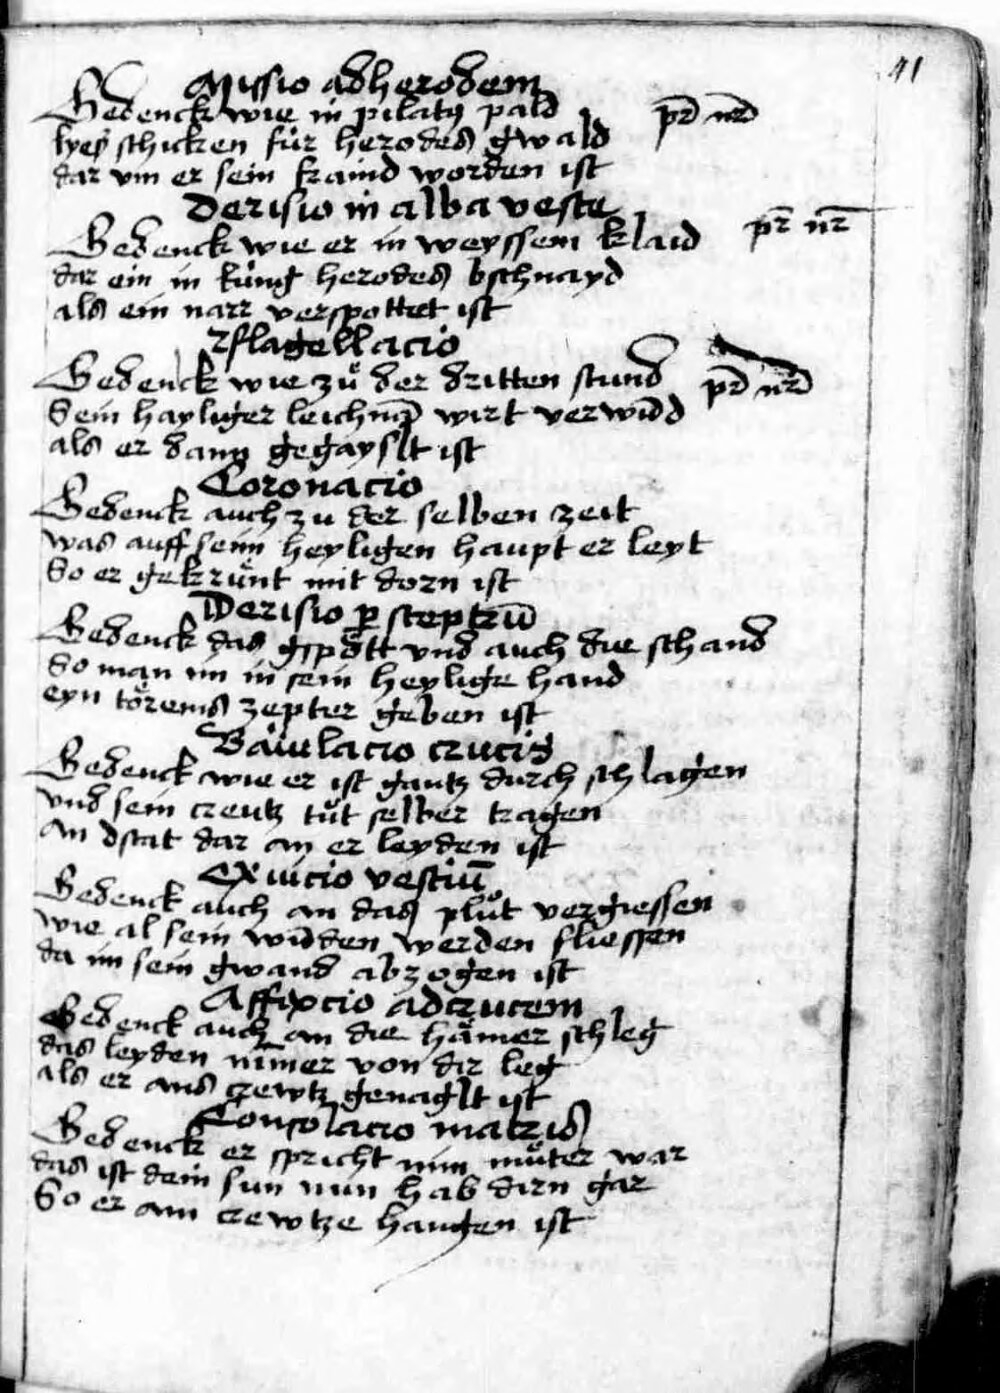 41
Missio ad herodem
Gedenck wie in pilatꝰ pald pr̄ nr̄
lyeß schicken für herodes gwald
dar vm er sein fraind worden ist
Derisio in alba veste
Gedenck wie er in weyssem klaid pr̄ nr̄
dar ein in küng herodes bschnayd
als ein narr verspottet ist
flagellacio
Gedenck wie zů der dritten stund pr̄ nr̄
Sein hayliger leichnā wirt verwūd
als er dann gegayslt ist
Coronacio
Gedenck auch zu der selben zeit
was auff seim heyligen haupt er leyt
So er gekrůnt mit dorn ist
Derisio ꝑ sceptrū
Gedenck das gspött vnd auch die schand
So man im in sein heylige hand
eyn törems zepter geben ist
Baiulacio crucis
Gedenck wie er ist gantz durch schlagen
vnd sein creutz tůt selber tragen
An dstat dar an er leyden ist
Exuicio vestiū
Gedenck auch an das plůt vergiessen
wie al sein wūden werden fliessen
da im sein gwand abzogen ist
Affixcio ad crucem
Gedenck auch an die hämer schleg
das leyden nīmer von dir leg
als er ans crewtz genaglt ist
Consolacio matris
Gedenck er spricht nim můter war
das ist dein sun nun hab dirn gar
So er am crewtze hangen ist